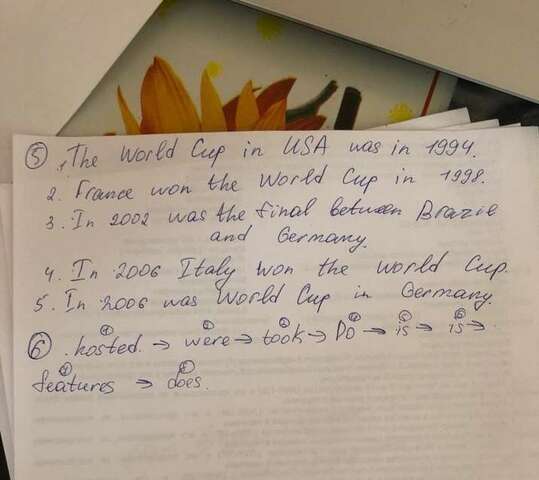 ⑤ 1. The World Cup in USA was in 1994.
2. France won the World Cup in 1998.
3. In 2002 was the final between Brazil
and Germany.
4. In 2006 Italy won the world Cup.
5. In 2006 was World Cup in Germany.
⑥ . hosted. → were → took → Do → is → is →
features → does.